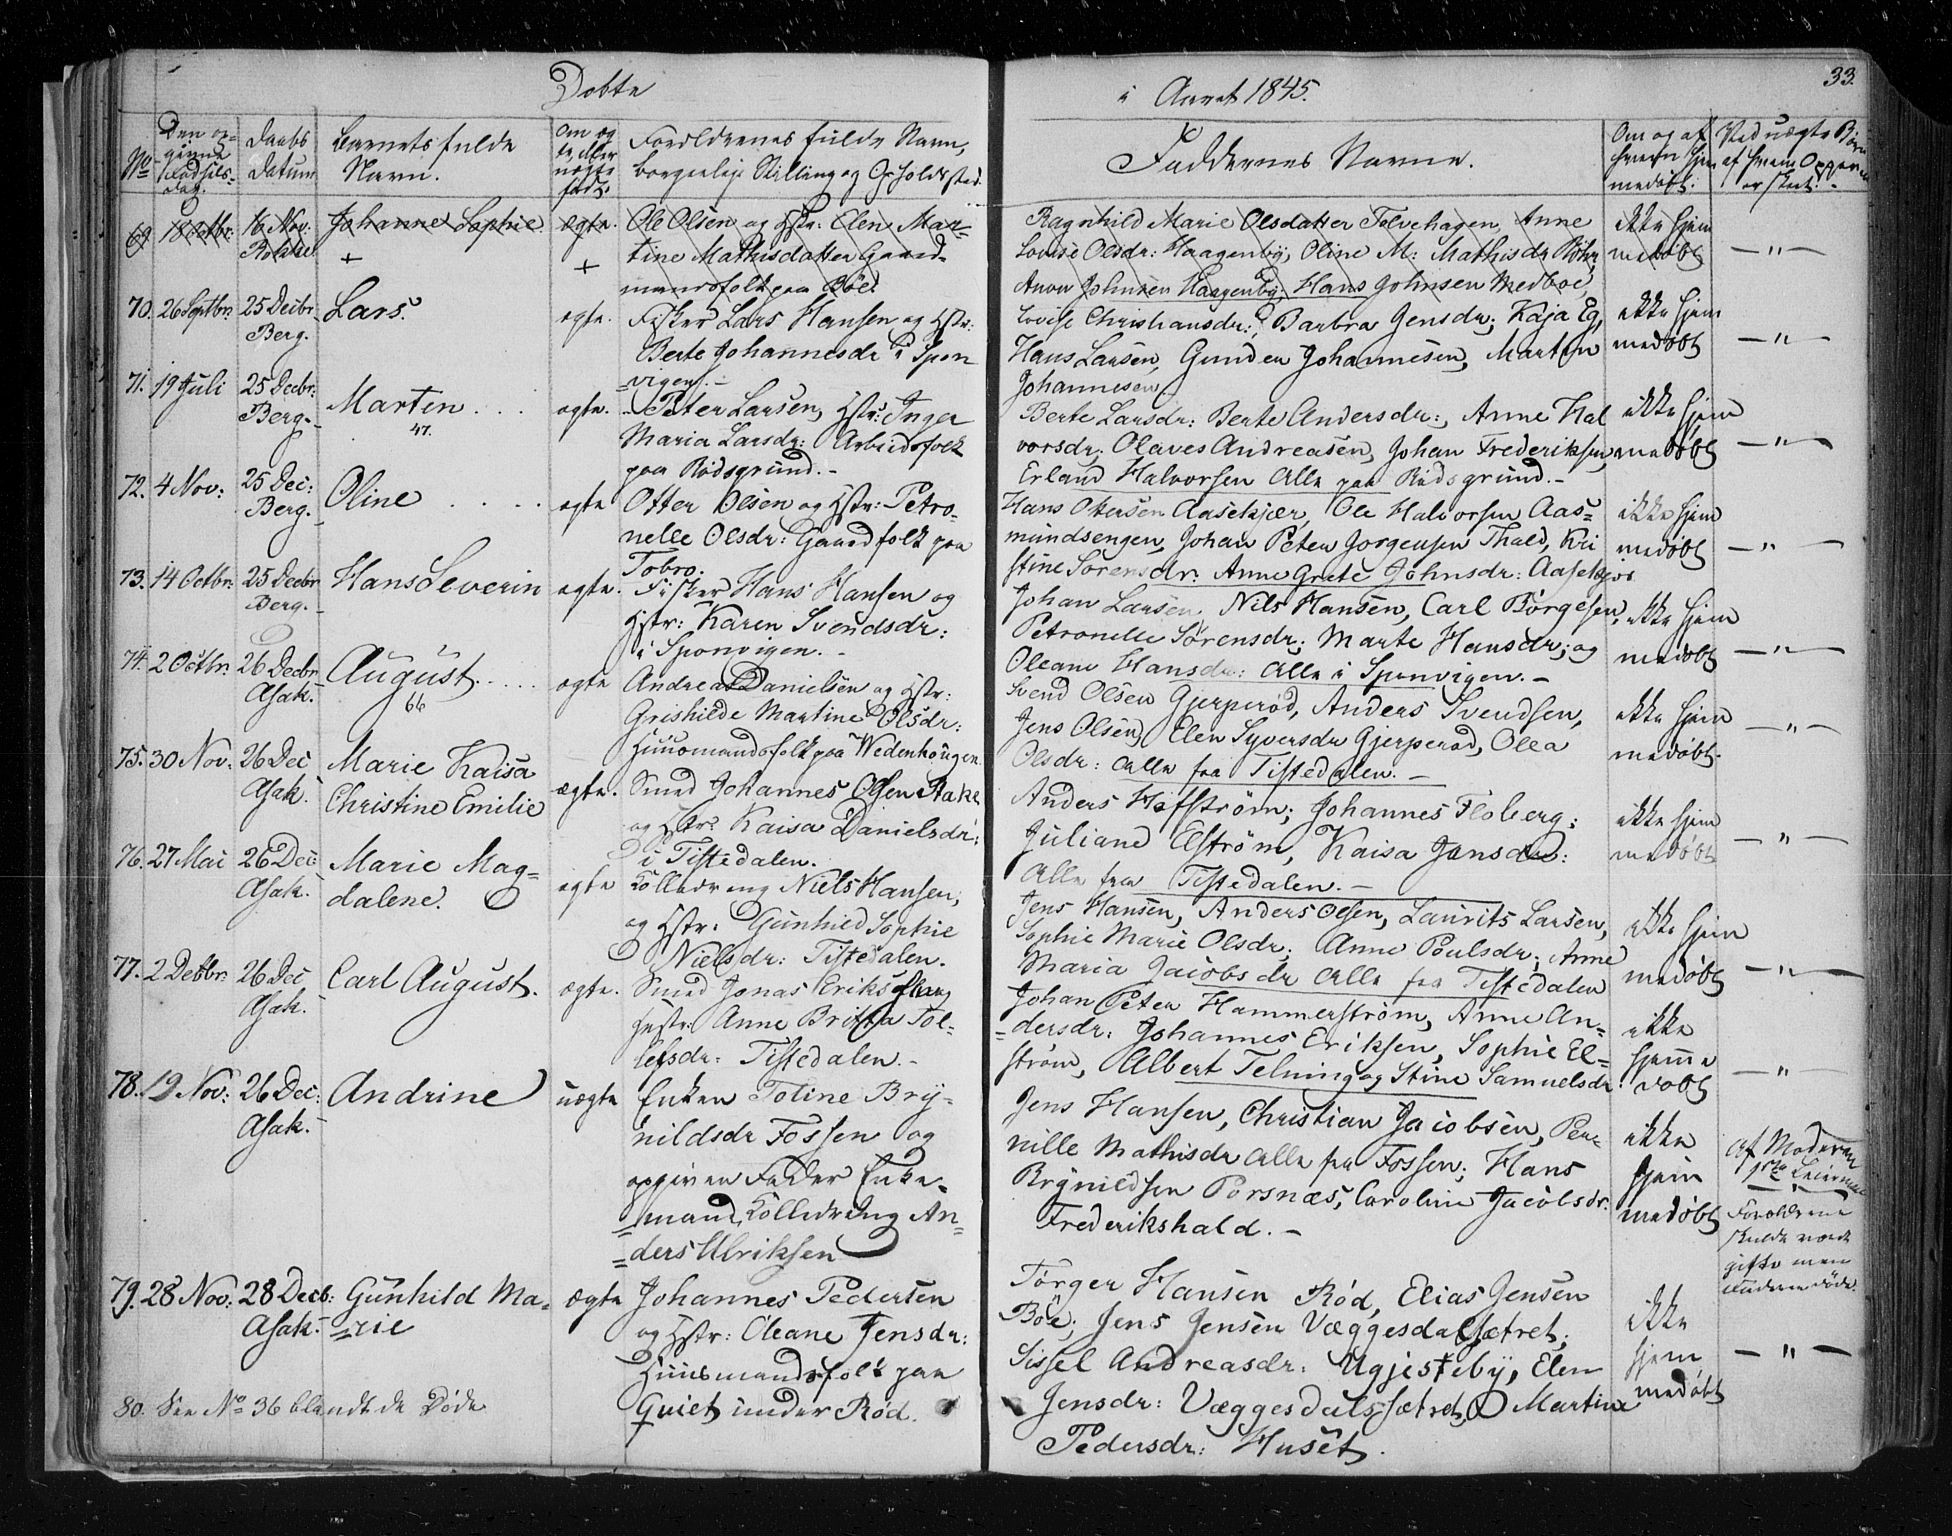 Döbte
i Aaret 1845.
33.
No
Den op-
givne
Födsels-
dag.
Daabs
Datum
Barnets fulde
Navn.
Om æg
te eller
uægte
født.
Forældrenes fulde Navn,
borgerlige Stilling og Opholdssted.
Faddernes Navne.
Om og af
hvem hjem
medøbt.
Ved uægte Børn
af hvem Opgaven
er skeet.
69 18 Octbr: 16 Nov: Johanne Sophie ægte. Ole Olsen og Hstr: Elen Mar-
Rokke + + tine Mathisdatter Gaard-
mandsfolk paa Böe
Ragnhild Marie Olsdatter Tolvehagen, Anne
Lovise Olsdr: Haagenby, Oline M: Mathisdr
Johnsen Haagenby, Hans Johnsen Medboe,
ikke hjem
medøbt
— " —
70. 26 Septbr: 25 Decbr Lars. ægte. Fisker Lars Hansen og Hstr:
Berg. Berte Johannesdr i Spon
vigen. -
Lovise Christiansdr: Barbra Jensdr; Kaja Eg,
Hans Larsen, Gunder Johannesen, Martin
Johannesen
ikke hjem
medøbt
— " —
71. 19 Juli 25 Decbr: Marten . . . . ægte. Peter Larsen, Hstr: Inger
Berg. 47. Maria Larsdr: Arbeidsfolk
paa Rødsgrund. -
Berte Larsdr: Berte Andersdr:, Anne Hal
vorsdr: Olaves Andreasen, Johan Frederiksen,
Erland Halvorsen Alle paa Rødsgrund. -
ikke hjem
medøbt
— " —
72. 4 Nov: 25 Dec: Oline . . . . ægte Otter Olsen og Hstr: Petro-
Berg. nelle Olsdr: Gaardfolk paa
Tobro.
Hans Ottersen Aasekjær, Ole Halvorsen Aas=
mundsengen, Johan Peter Jørgensen Thald, Kri
stine Sørensdr: Anne Grete Johnsdr: Aasekjær
ikke hjem
medøbt
— " —
73. 14 Octbr: 25 Decbr Hans Severin ægte. Fisker Hans Hansen og
Berg. Hstr: Karen Svendsdr:
i Sponvigen. -
Johan Larsen, Nils Hansen, Carl Börgesen,
Petronelle Sörensdr; Marte Hansdr; og
Oleane Hansdr: Alle i Sponvigen. -
ikke hjem
medøbt
— " —
74. 2 Octbr: 26 Decbr August . . . . ægte Andreas Danielsen og Hstr:
Asak. 66 Grishilde Martine Olsdr:
Huusmandsfolk paa Wedenhougen.
Svend Olsen Gjerperød, Anders Svendsen,
Jens Olsen, Elen Syversdr Gjerperød, Olea
Olsdr: Alle fra Tistedalen. -
ikke hjem
medøbt.
— " —
75. 30 Nov: 26 Dec Marie Kaisa ægte. Smed Johannes Olsen Stake
Asak. Christine Emilie og Hstr: Kaisa Danielsdr:
i Tistedalen.
Anders Hoffstrøm; Johannes Floberg;
Juliane Elström, Kaisa Jansdr:
Alle fra Tistedalen. -
ikke hjem
medøbt
— " —
76. 27 Mai 26 Dec Marie Mag= ægte Kulledreng Niels Hansen,
Asak. dalene. og Hstr: Gunhild Sophie
Nielsdr: Tistedalen.
Jens Hansen, Anders Olsen, Laurits Larsen,
Sophie Marie Olsdr; Anne Poulsdr; Anne
Maria Jacobsdr Alle fra Tistedalen
ikke hjem
medøbt
— " —
77. 2 Octbr: 26 Dec Carl August. ægte. Smed Jonas Eriks
Asak. Hstr: Anne Britta Tol=
lefsdr: Tistedalen -
Johan Peter Hammerström, Anne An=
=dersdr: Johannes Eriksen, Sophie El=
ström, Albert Telning og Stine Samuelsdr
ikke
hjemme
døbt
— " —
78. 19 Nov: 26 Dec: Andrine uægte Enken Toline Bry-
Asak. nildsdr Fossen og
opgiven Fader Enke-
=mand, Kulledreng An-
=ders Ulriksen
Jens Hansen, Christian Jacobsen, Per=
nille Mathisdr Alle fra Fossen; Hans
Brynildsen Porsnæs, Caroline Jacobsdr.
Frederikshald. -
ikke
hjem
medøbt
Af Moderen
Forældrene
skulde være
gifte men
Faderen døde.
79. 28 Nov: 28 Decb: Gunhild Ma- ægte Johannes Pedersen
Asak. =rie og Hstr: Oleane Jensdr:
Huusmandsfolk paa
Qviet under Rød.
Törger Hansen Rød, Elias Jensen
Böe, Jens Jensen Væggesdalsætret,
Sissel Andreasdr: Ugjesteby, Elen
Jensdr: Væggesdalssætret, Martine
Pedersdr: Huset.
ikke
hjem
medøbt
— " —
80. See No 36 blandt de Døde